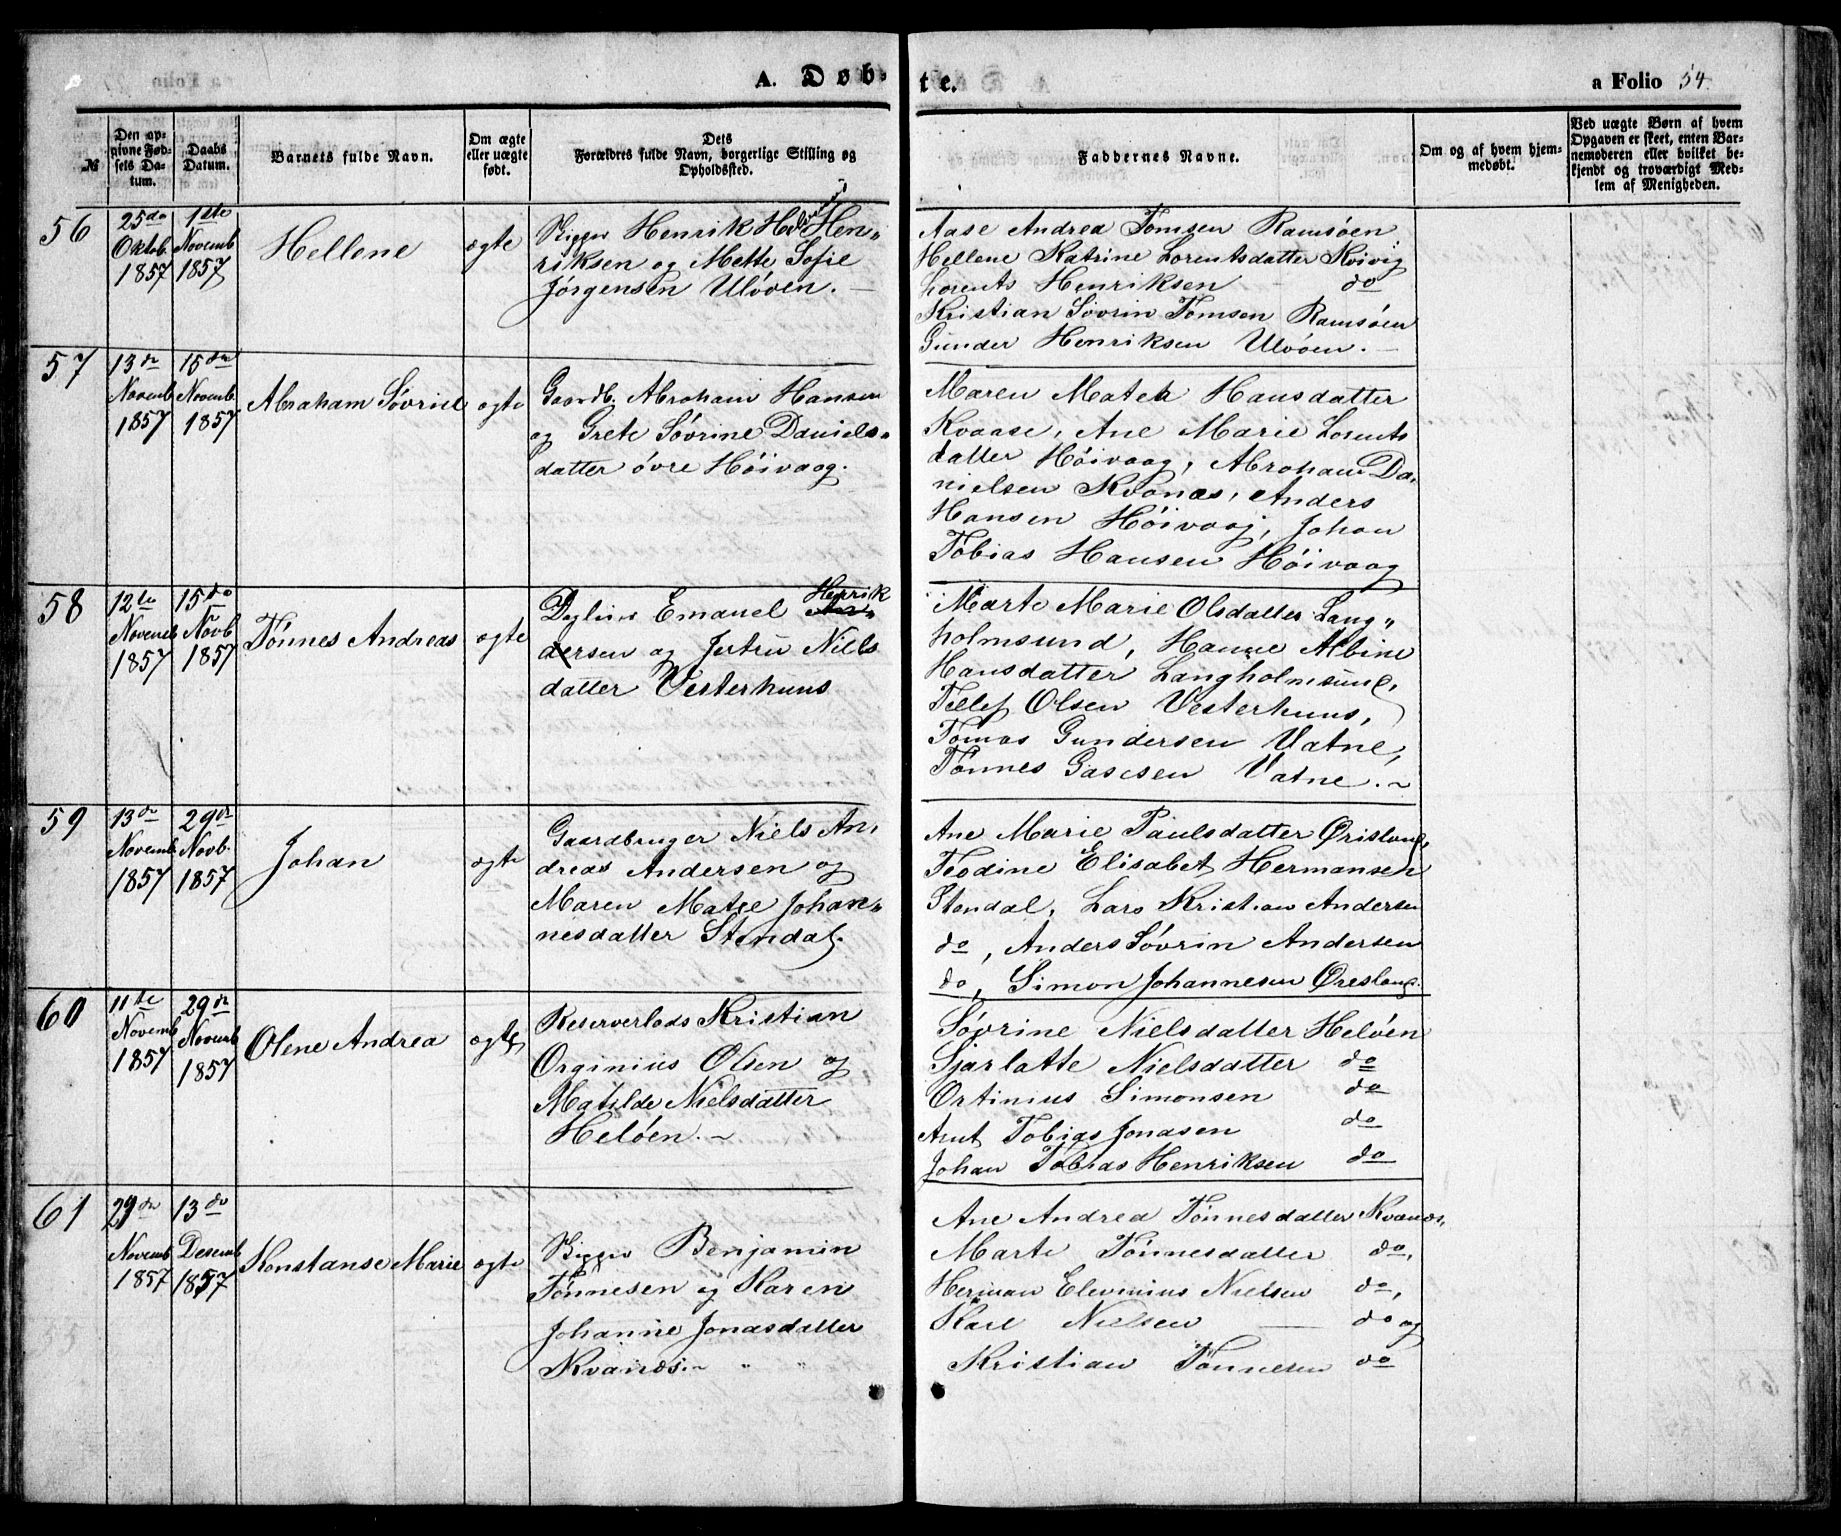 A. Døb-
te.
a Folio 54.
№
Den opgivne Fødsels Datum.
Daabs Datum.
Barnets fulde Navn.
Om ægte eller uægte født.
Dets Forældres fulde Navn, borgerlige Stilling og Opholdssted.
Faddernes Navne.
Om og af hvem hjemmedøbt.
Ved uægte Børn af hvem Opgaven er skeet, enten Barnemoderen eller hvilket bekjendt og troværdigt Medlem af Menigheden.
56
25de
Oktob.
1857
1ste
Novemb
1857
Hellene
ægte
Henrik Hen„
riksen og Mette Sofie
Jörgensen Ulöven. —
Aase Andrea Tomsen Ramsöen
Hellene Katrine Lorentsdatter Kvivig
Lorents Henriksen do
Kristian Sövrin Tomsen Ramsöen
Gunder Henriksen Ulvöen. —
57
13de
Novemb
1857
15de
Novemb
1857
Abraham Sövrin
ægte
Gaardb. Abraham Hansen
og Grete Sövrine Daniels„
datter övre Höivaag.
Maren Hansdatter
Kvaase, Ane Marie Lorents
datter Höivaag, Abraham Da„
nielsen Kvanæs, Anders
Hansen Höivaag, Johan
Tobias Hansen Höivaag
58
12te
Novemb
1857
15de
Novb
1857
Tönnes Andreas
ægte
Emanuel Henrik
dersen og Jertru Niels
datter Vesterhuus
Marte Marie Olsdatter Lang„
holmsund, Hanne Albine
Hansdatter Langholmsund,
Tellef Olsen Vesterhuus,
Tomas Gundersen Vatne,
Tönnes Vatne. ~
59
13de
Novemb.
1857
29de
Novb.
1857
Johan
ægte
Gaardbruger Niels An„
dreas Andersen og
Maren Matje Johan„
nesdatter Stendal.
Ane Marie Paulsdatter
Teodine Elisabet Hermansen
Stendal, Lars Kristian Andersen
do, Anders Sövrin Andersen
do, Simon Johannesen Øreslang.
60
11te
Novemb
1857
29de
Novemb
1857
Olene Andrea
ægte
Reserverlods Kristian
Orginius Olsen og
Matilde Nielsdatter
Helöen. ~
Sövrine Nielsdatter Helöen
Sjarlatte Nielsdatter do
Ortinius Simonsen do
Arnt Tobias Jonasen do
Johan Tobias Henriksen do
61
29de
Novemb
1857
13de
Desemb
1857
Konstanse Marie
ægte
Benjamin
Tönnesen og Karen
Johanne Jonasdatter
Kvanæs. ~ " "
Ane Andrea Tönnesdatter Kvanæs,
Marte Tönnesdatter do,
Herman Elevinius Nielsen do,
Karl Nielsen — do og
Kristian Tönnesen do